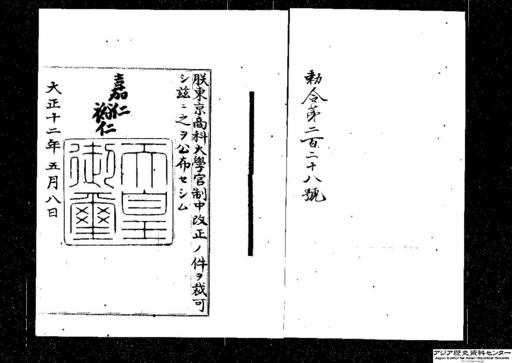 勅令第二百二十八號
朕東京商科大學官制中改正ノ件ヲ裁可
シ茲ニ之ヲ公布セシム
嘉仁
裕仁
天皇
御璽
大正十二年五月八日
アジア歴史資料センター
Japan Center for Asian Historical Records